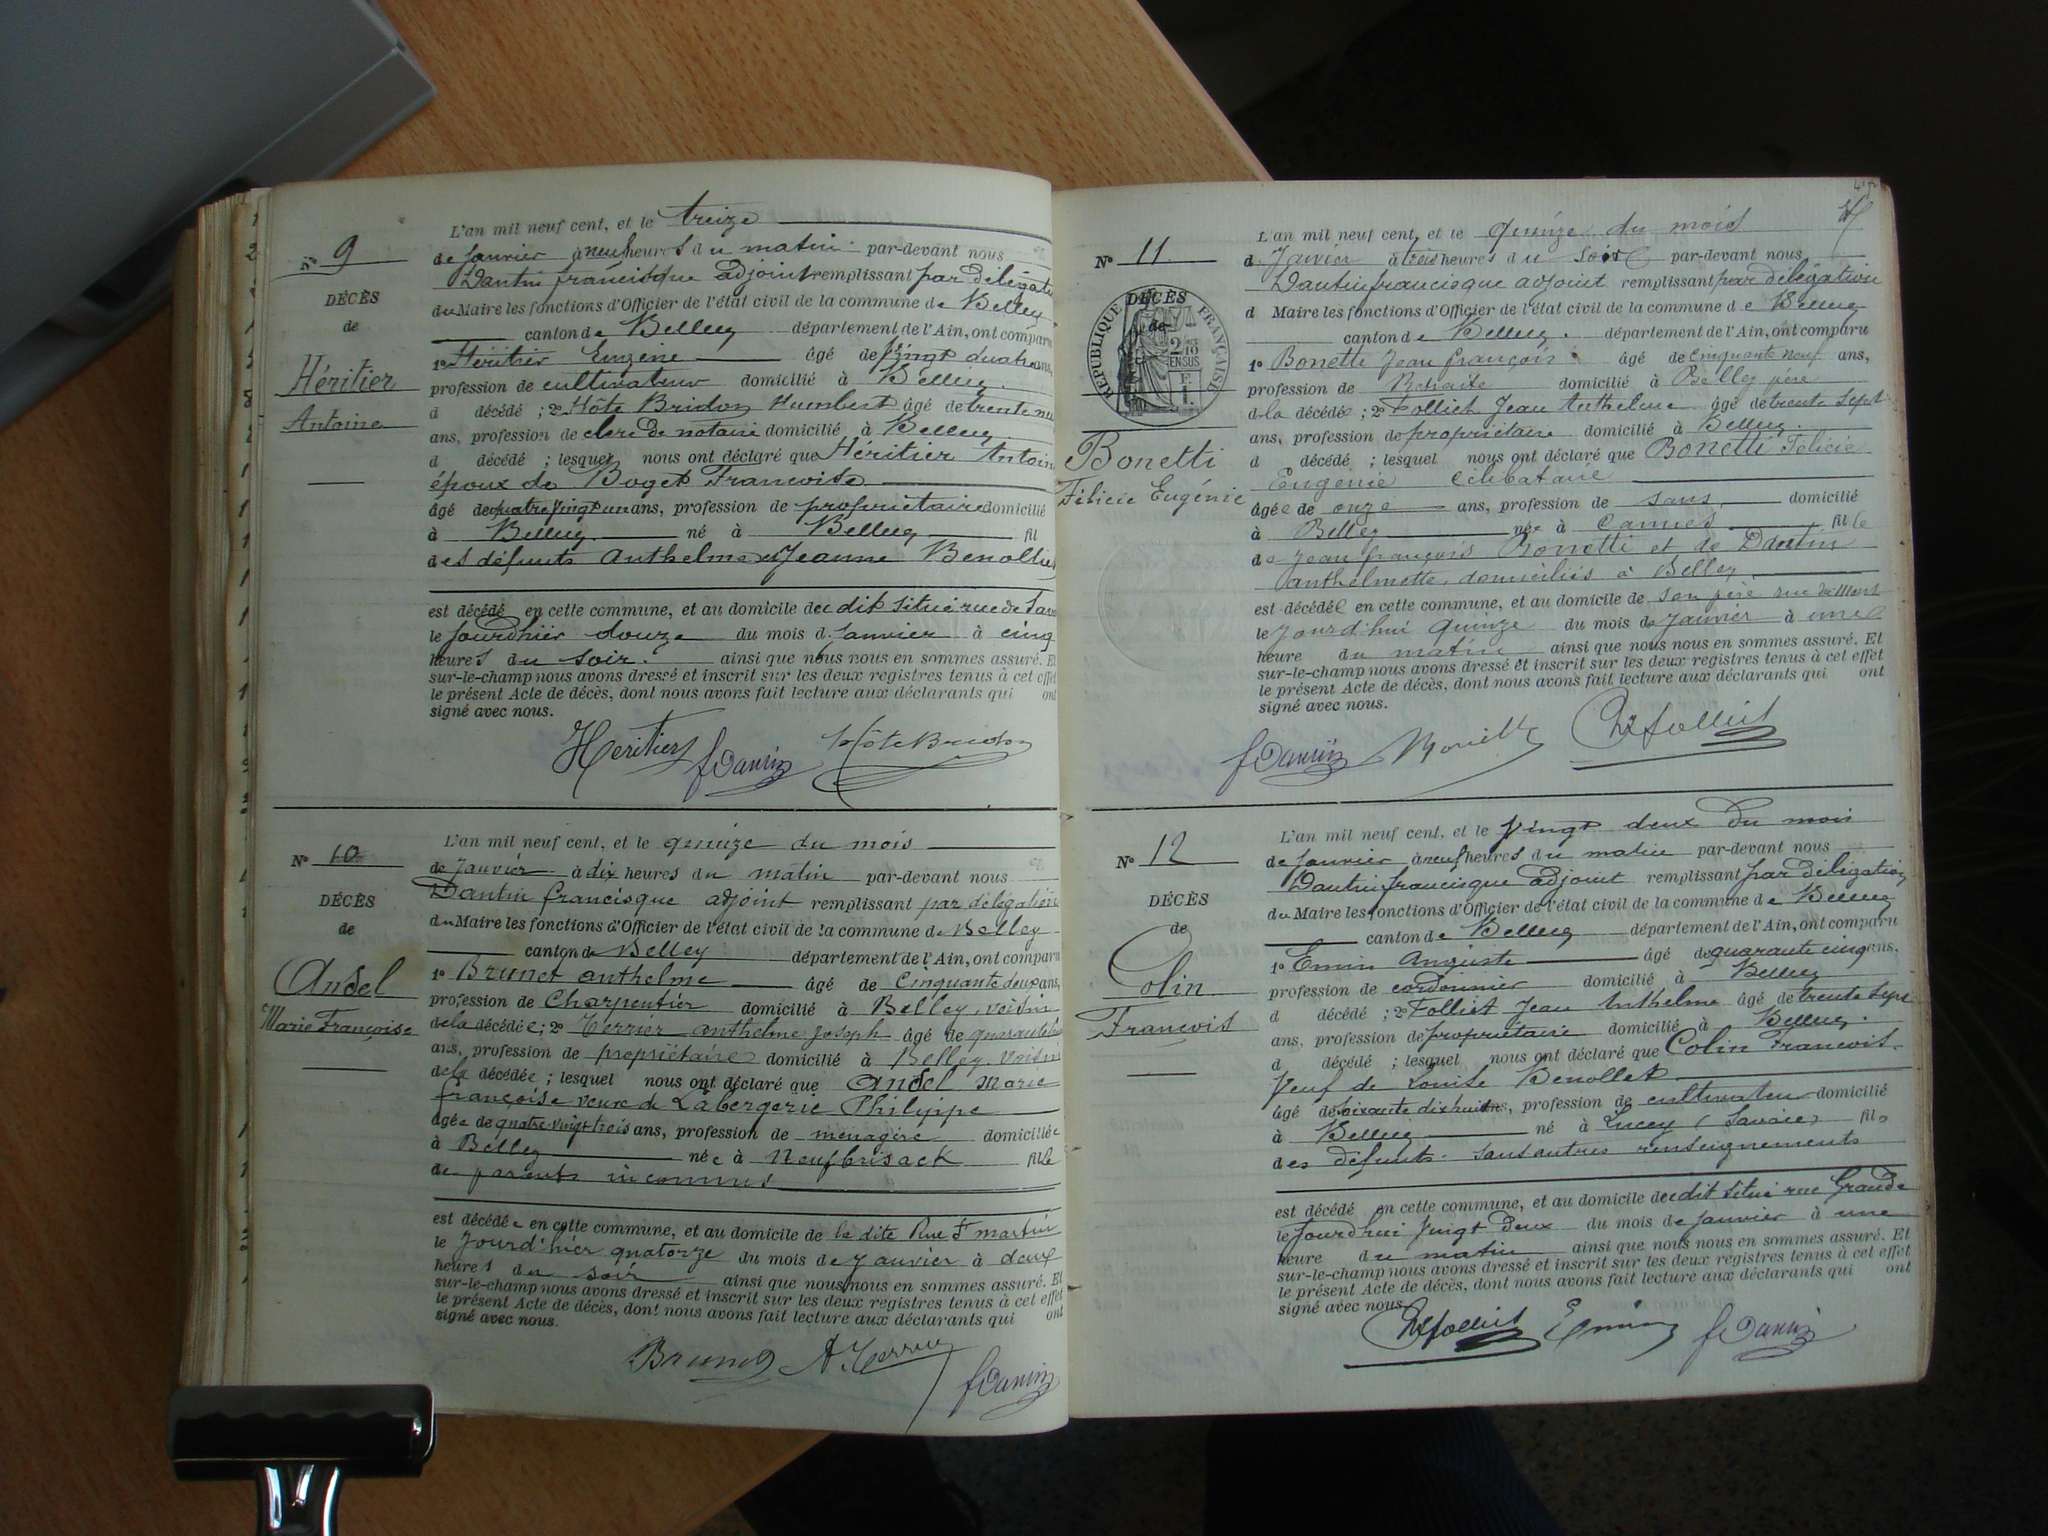 N° 9
DÉCÈS
de
Héritier
Antoine
L'an mil neuf cent, et le treize
de Janvier à neuf heures du matin par-devant nous
Dantin francisque adjoint remplissant par délégati
du Maire les fonctions d'Officier de l'état civil de la commune de Belley
canton de Belley département de l'Ain, ont comparu
1° Héritier Eugène âgé de vingt quatre ans,
profession de cultivateur domicilié à Belley.
d décédé ; 2° Hôte Bridon Humbert âgé de trente neu
ans, profession de clerc de notaire domicilié à Belley
d décédé ; lesquel nous ont déclaré que Héritier Antoin
époux de Boget Francoise
âgé de quatre vingt un ans, profession de propriétaire domicilié
à Belley né à Belley fil
des défunts Anthelme et Jeanne Benollie
est décédé en cette commune, et au domicile du dit situé rue de
le jourdhier douze du mois d. Janvier à cinq
heures du soir. ainsi que nous nous en sommes assuré. Et
sur-le-champ nous avons dressé et inscrit sur les deux registres tenus à cet effet
le présent Acte de décès, dont nous avons fait lecture aux déclarants qui ont
signé avec nous.
Heritier f Dantin Hôte Bridon
N° 10
DÉCÈS
de
Andel
Marie Françoise
L'an mil neuf cent, et le quinze du mois
de Janvier à dix heures du matin par-devant nous
Dantin francisque adjoint remplissant par délégation
du Maire les fonctions d'Officier de l'état civil de la commune de Belley
canton de Belley département de l'Ain, ont comparu
1° Brunet anthelme âgé de Cinquante deux ans,
profession de Charpentier domicilié à Belley, voisin
de la décédée ; 2° Terrier anthelme joseph âgé de
ans, profession de propriétaire domicilié à Belley. voisin
de la décédée ; lesquel nous ont déclaré que Andel Marie
françoise veuve de Labergerie Philippe
âgée de quatre-vingt trois ans, profession de ménagère domiciliée
à Belley née à Neufbrisack fille
de parents inconnus
est décédée en cette commune, et au domicile de la dite Rue St martin
le jourd'hier quatorze du mois de Janvier à deux
heures du soir ainsi que nous nous en sommes assuré. Et
sur-le-champ nous avons dressé et inscrit sur les deux registres tenus à cet effet
le présent Acte de décès, dont nous avons fait lecture aux déclarants qui ont
signé avec nous.
Brunet A. Terrier
f Dantin
N° 11
DÉCÈS
de
RÉPUBLIQUE FRANÇAISE
2/10 EN SUS
Bonetti
Félicie Eugénie
L'an mil neuf cent, et le quinze du mois
d. Janvier à trois heures du soir par-devant nous
Dantin francisque adjoint remplissant par délégation
d Maire les fonctions d'Officier de l'état civil de la commune de Belley
canton de Belley. département de l'Ain, ont comparu
1° Bonetti Jean françois âgé de cinquante neuf ans,
profession de Retraité domicilié à Belley père
de la décédée ; 2° Folliet Jean Anthelme âgé de trente sept
ans, profession de propriétaire domicilié à Belley.
d décédé ; lesquel nous ont déclaré que Bonetti Félicie
Eugénie célibataire
âgée de onze ans, profession de sans domicilié
à Belley née à Cannes fille
de Jean françois Bonetti et de Dantin
anthelmette, domiciliés à Belley
est décédée en cette commune, et au domicile de son père rue du Mont
le jourd'hui quinze du mois de Janvier à une
heure du matin ainsi que nous nous en sommes assuré. Et
sur-le-champ nous avons dressé et inscrit sur les deux registres tenus à cet effet
le présent Acte de décès, dont nous avons fait lecture aux déclarants qui ont
signé avec nous.
f Dantin Bonetti Folliet
N° 12
DÉCÈS
de
Colin
Francois
L'an mil neuf cent, et le vingt deux du mois
de Janvier à neuf heures du matin par-devant nous
Dantin francisque adjoint remplissant par délégation
du Maire les fonctions d'Officier de l'état civil de la commune de Belley
canton de Belley département de l'Ain, ont comparu
1° Emin Auguste âgé de quarante cinq ans,
profession de cordonnier domicilié à Belley
d décédé ; 2° Folliet Jean Anthelme âgé de trente sept
ans, profession de propriétaire domicilié à Belley.
d décédé ; lesquel nous ont déclaré que Colin Francois
veuf de Louise Benollet
âgé de soixante dix huit ans, profession de cultivateur domicilié
à Belley né à Lucey (Savoie) fils
des défunts sans autres renseignements
est décédé en cette commune, et au domicile du dit situé rue Grande
le jourdhui vingt deux du mois de Janvier à une
heure du matin ainsi que nous nous en sommes assuré. Et
sur-le-champ nous avons dressé et inscrit sur les deux registres tenus à cet effet
le présent Acte de décès, dont nous avons fait lecture aux déclarants qui ont
signé avec nous.
Folliet Emin f Dantin